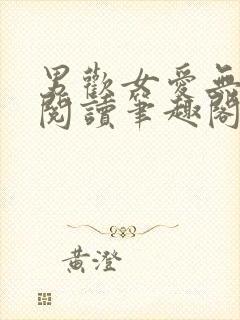 男歡女愛無
閱讀筆趣閣
黃澄